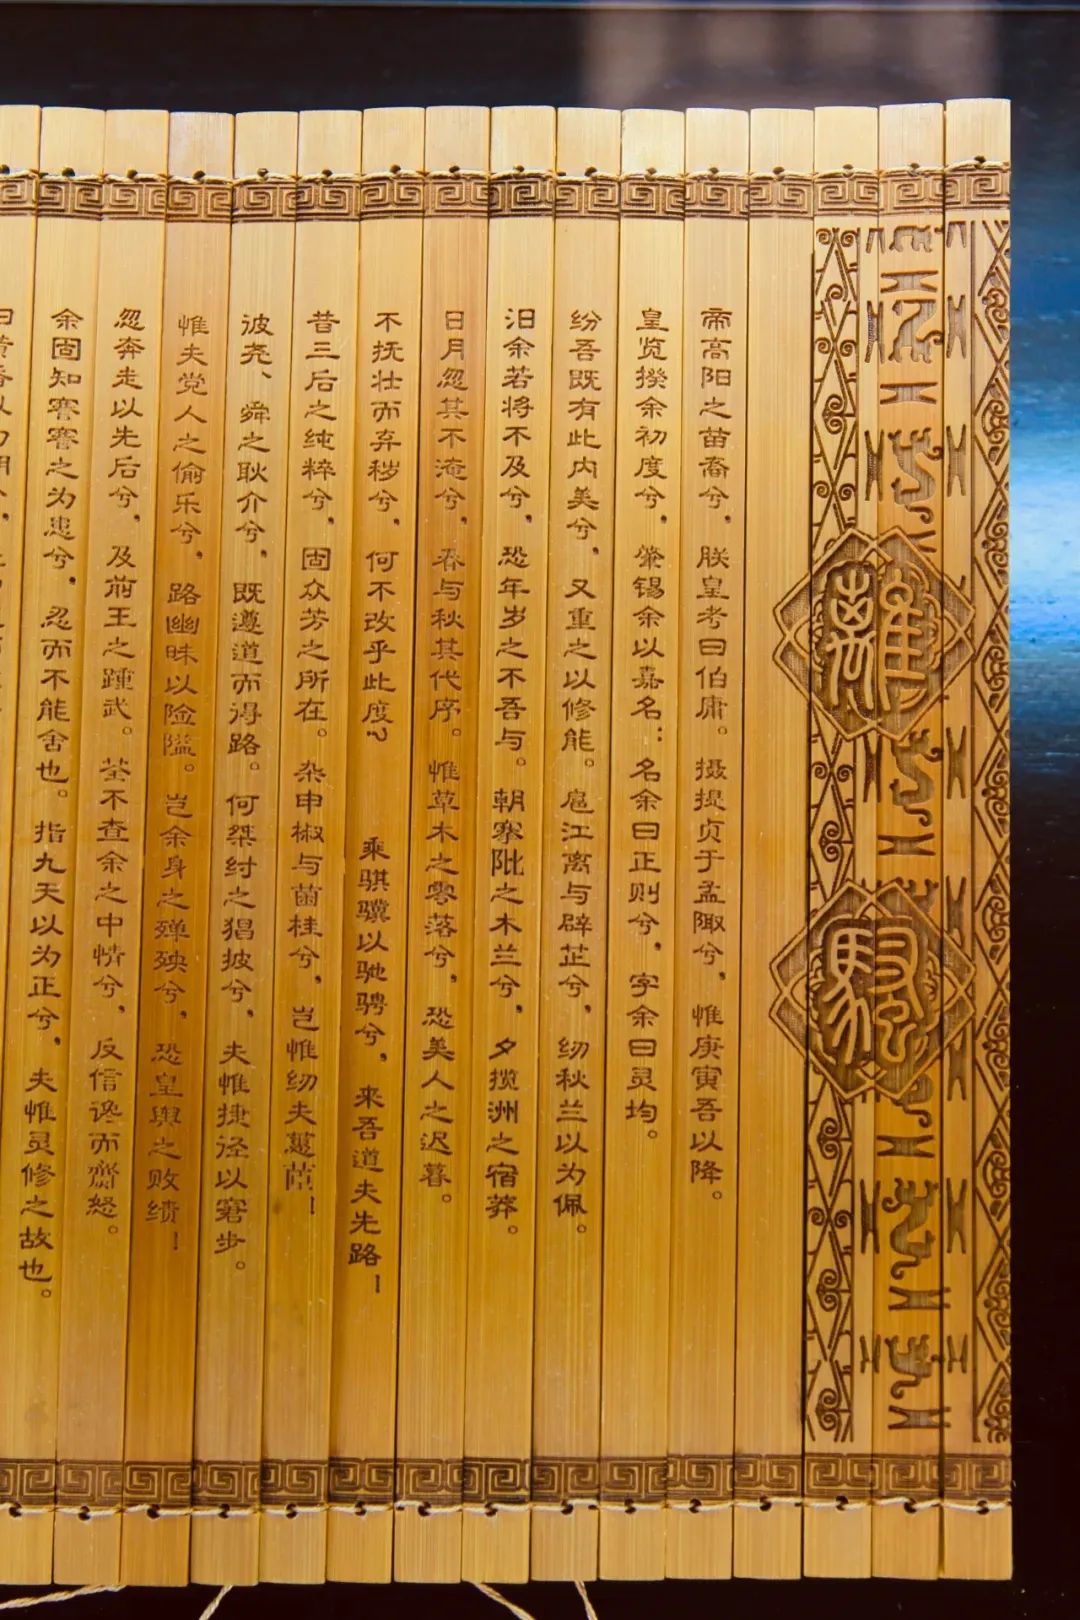 離騷
帝高阳之苗裔兮，朕皇考曰伯庸。摄提贞于孟陬兮，惟庚寅吾以降。
皇览揆余初度兮，肇锡余以嘉名：名余曰正则兮，字余曰灵均。
纷吾既有此内美兮，又重之以修能。扈江离与辟芷兮，纫秋兰以为佩。
汨余若将不及兮，恐年岁之不吾与。朝搴阰之木兰兮，夕揽洲之宿莽。
日月忽其不淹兮，春与秋其代序。惟草木之零落兮，恐美人之迟暮。
不抚壮而弃秽兮，何不改乎此度？乘骐骥以驰骋兮，来吾道夫先路！
昔三后之纯粹兮，固众芳之所在。杂申椒与菌桂兮，岂惟纫夫蕙茞！
彼尧、舜之耿介兮，既遵道而得路。何桀纣之猖披兮，夫惟捷径以窘步。
惟夫党人之偷乐兮，路幽昧以险隘。岂余身之殚殃兮，恐皇舆之败绩！
忽奔走以先后兮，及前王之踵武。荃不查余之中情兮，反信谗而齌怒。
余固知謇謇之为患兮，忍而不能舍也。指九天以为正兮，夫惟灵修之故也。